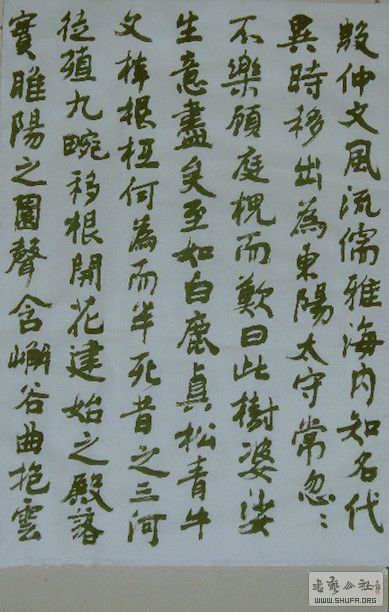 殷仲文風流儒雅海內知名代
異時移出為東陽太守常忽〻
不樂顧庭槐而歎曰此樹婆娑
生意盡矣至如白鹿貞松青牛
文梓根柢何為而半死昔之三河
徙殖九畹移根開花建始之殿落
實睢陽之園聲含嶰谷曲抱雲
书艺公社
WWW.SHUFA.ORG